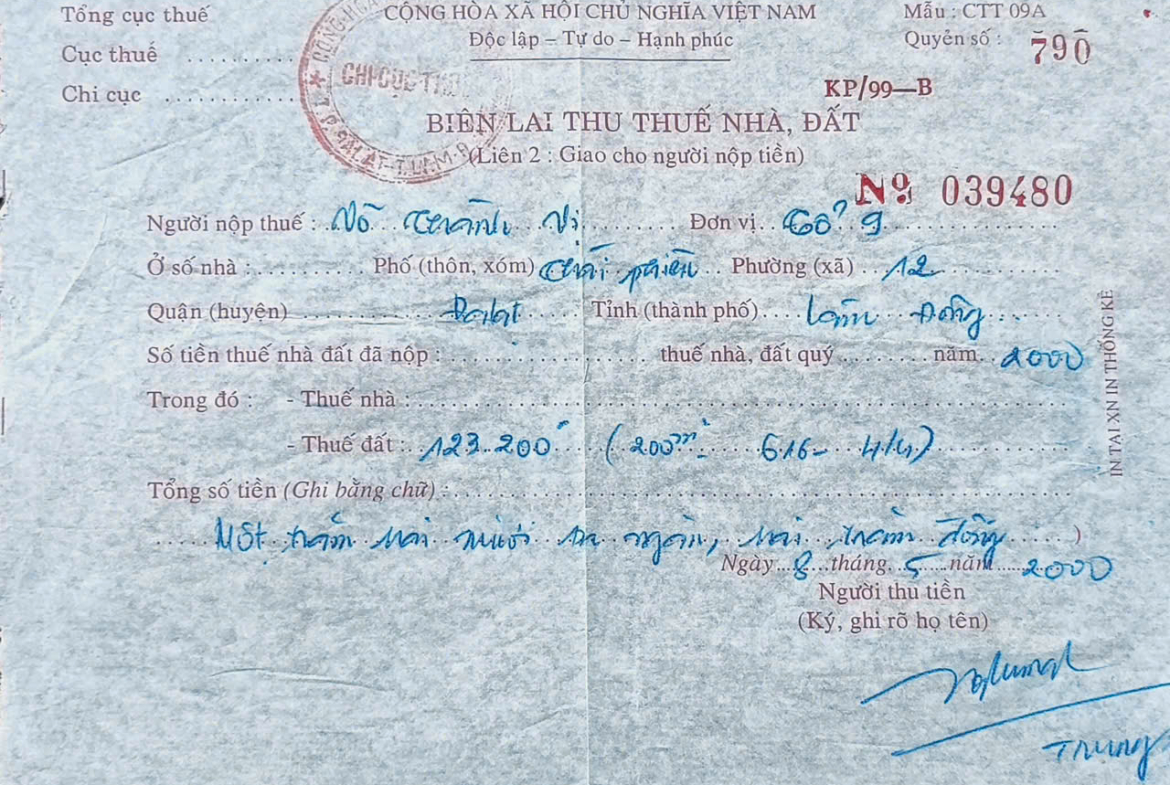 Tổng cục thuế
Cục thuế ..........
Chi cục ..........
CHI CỤC THUẾ
CỘNG HÒA XÃ HỘI CHỦ NGHĨA VIỆT NAM
Độc lập – Tự do – Hạnh phúc
Mẫu : CTT 09A
Quyển số : 790
KP/99—B
BIÊN LAI THU THUẾ NHÀ, ĐẤT
(Liên 2 : Giao cho người nộp tiền)
Nº 039480
Người nộp thuế : Võ Thành Vị Đơn vị Tổ 9
Ở số nhà : .......... Phố (thôn, xóm) Thái phiên Phường (xã) 12
Quận (huyện) Dalat Tỉnh (thành phố) Lâm Đồng
Số tiền thuế nhà đất đã nộp : .......... thuế nhà, đất quý .......... năm 2000
Trong đó : - Thuế nhà : ..........
- Thuế đất : 123.200đ (200m² 616- 4/4)
Tổng số tiền (Ghi bằng chữ) : ..........
Một trăm hai mươi ba ngàn, hai trăm đồng )
Ngày 8 tháng 5 năm 2000
Người thu tiền
(Ký, ghi rõ họ tên)
Trung
IN TẠI XN IN THỐNG KÊ